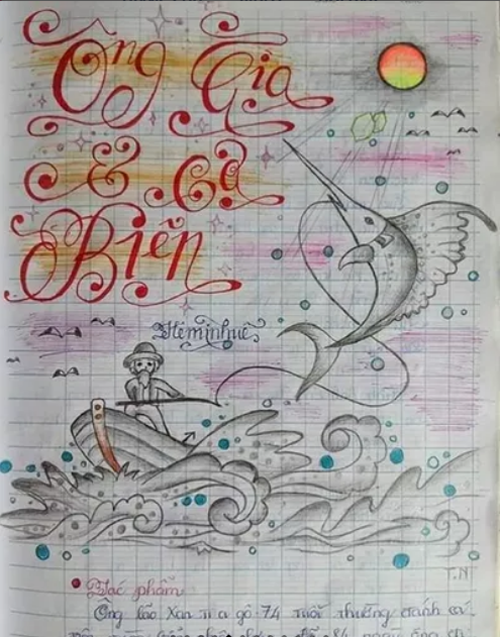 Ông Già
& cả
Biển
Hêminhuê
T.N
Tác phẩm
Ông lão Xan ti a gô 74 tuổi thường đánh cá